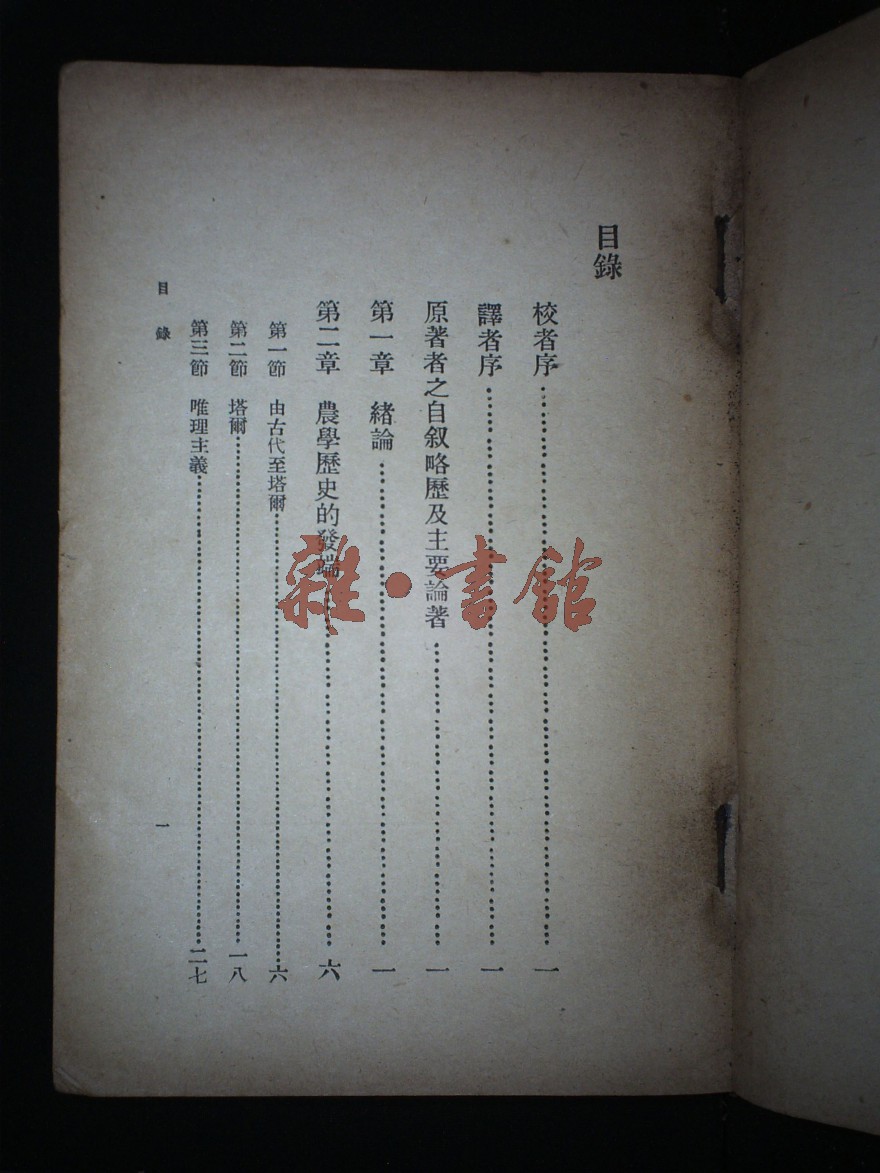 目錄
校者序……一
譯者序……一
原著者之自叙略歷及主要論著……一
第一章 緒論……一
第二章 農學歷史的發端……六
第一節 由古代至塔爾……六
第二節 塔爾……一八
第三節 唯理主義……二七
目錄 一
雜·書館